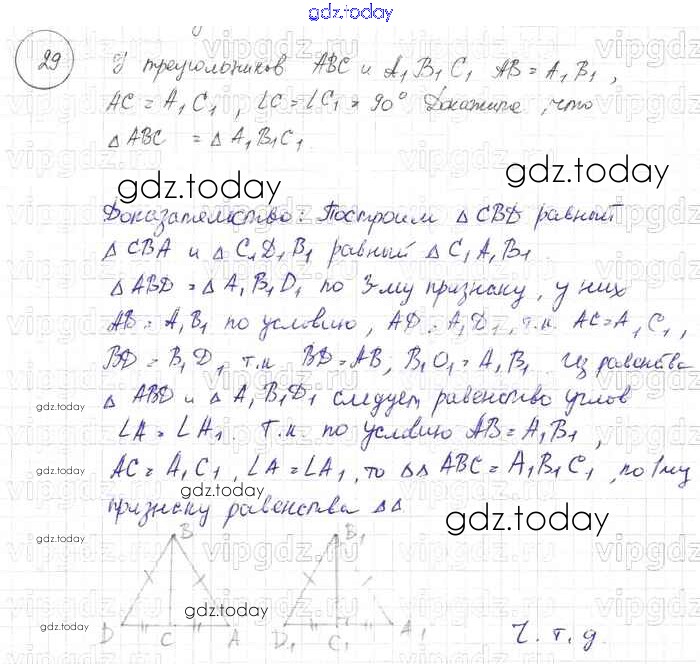 gdz.today
29 У треугольников ABC и A₁B₁C₁ AB = A₁B₁,
AC = A₁C₁, ∠C = ∠C₁ = 90° Докажите, что
△ABC = △A₁B₁C₁.
gdz.today gdz.today
Доказательство: Построим △CBD равный
△CBA и △C₁D₁B₁ равный △C₁A₁B₁.
△ABD = △A₁B₁D₁ по 3-му признаку, у них
AB = A₁B₁ по условию, AD = A₁D₁, т.к. AC = A₁C₁,
BD = B₁D₁ т.к. BD = AB, B₁D₁ = A₁B₁. Из равенства
△ABD и △A₁B₁D₁ следует равенство углов
gdz.today
∠A = ∠A₁. Т.к. по условию AB = A₁B₁,
AC = A₁C₁, ∠A = ∠A₁, то △△ABC = A₁B₁C₁, по 1му
gdz.today gdz.today
признаку равенства △△
gdz.today
B B₁
gdz.today
gdz.today
D C A D₁ C₁ A₁ Ч.т.д.
gdz.today